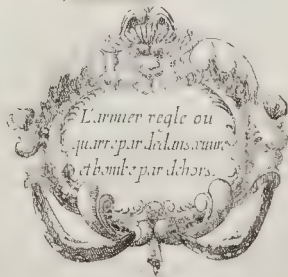 Larmier regle ou
quarre par dedans œuure
et bombe par dehors.